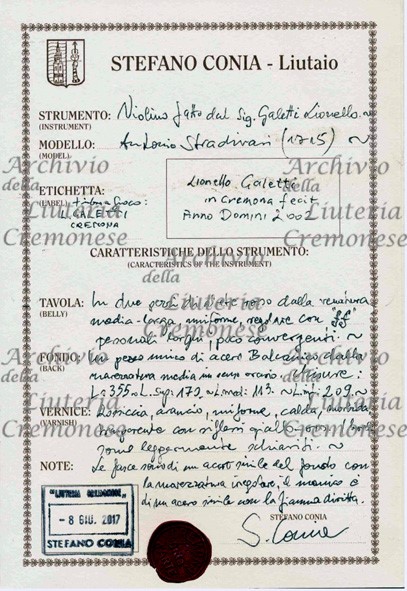 STEFANO CONIA - Liutaio
STRUMENTO: Violino fatto dal Sig. Galetti Lionello. ~
(INSTRUMENT)
MODELLO: Antonio Stradivari (1715) ~
(MODEL)
ETICHETTA:
(LABEL)
L. GALETTI
CREMONA
Lionello Galetti
in Cremona fecit
Anno Domini 2002
CARATTERISTICHE DELLO STRUMENTO:
(CARACTERISTICS OF THE INSTRUMENT)
TAVOLA: In due pezzi di abete rosso dalla venatura
(BELLY)
media-larga, uniforme, regolare con "ff"
personali larghi, poco convergenti ~
FONDO: Un pezzo unico di acero Balcanico dalla
(BACK)
marezzatura media in senso orario. Misure:
L: 355 ~ L. Sup: 172 ~ L. medi: 113. ~ L. inf: 209 ~
VERNICE: Rossiccia, arancio, uniforme, calda, morbida
(VARNISH)
trasparente con riflessi giallo
zone leggermente schiariti. ~
NOTE: Le fasce sono di un acero simile del fondo con
la marezzatura irregolare, il manico è
di un acero simile con la fiamma diritta.
STEFANO CONIA
S. Conia
"LIUTERIA CREMONESE"
- 8 GIU. 2017
STEFANO CONIA
Archivio
della
Liuteria
Cremonese
Archivio
della
Liuteria
Cremonese
Archivio
della
Liuteria
Cremonese
Archivio
della
Liuteria
Cremonese
Archivio
della
Liuteria
Cremonese